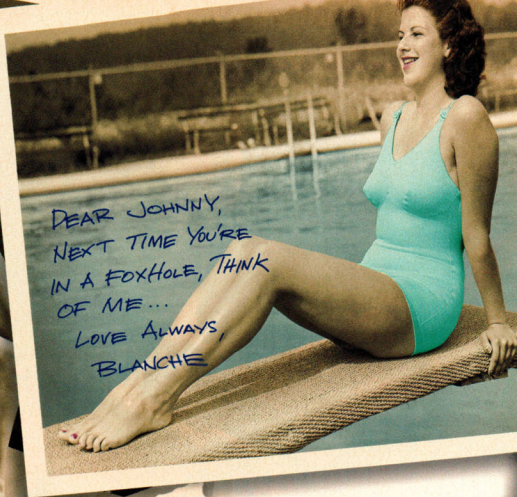 DEAR JOHNNY,
NEXT TIME YOU'RE
IN A FOXHOLE, THINK
OF ME...
LOVE ALWAYS,
BLANCHE